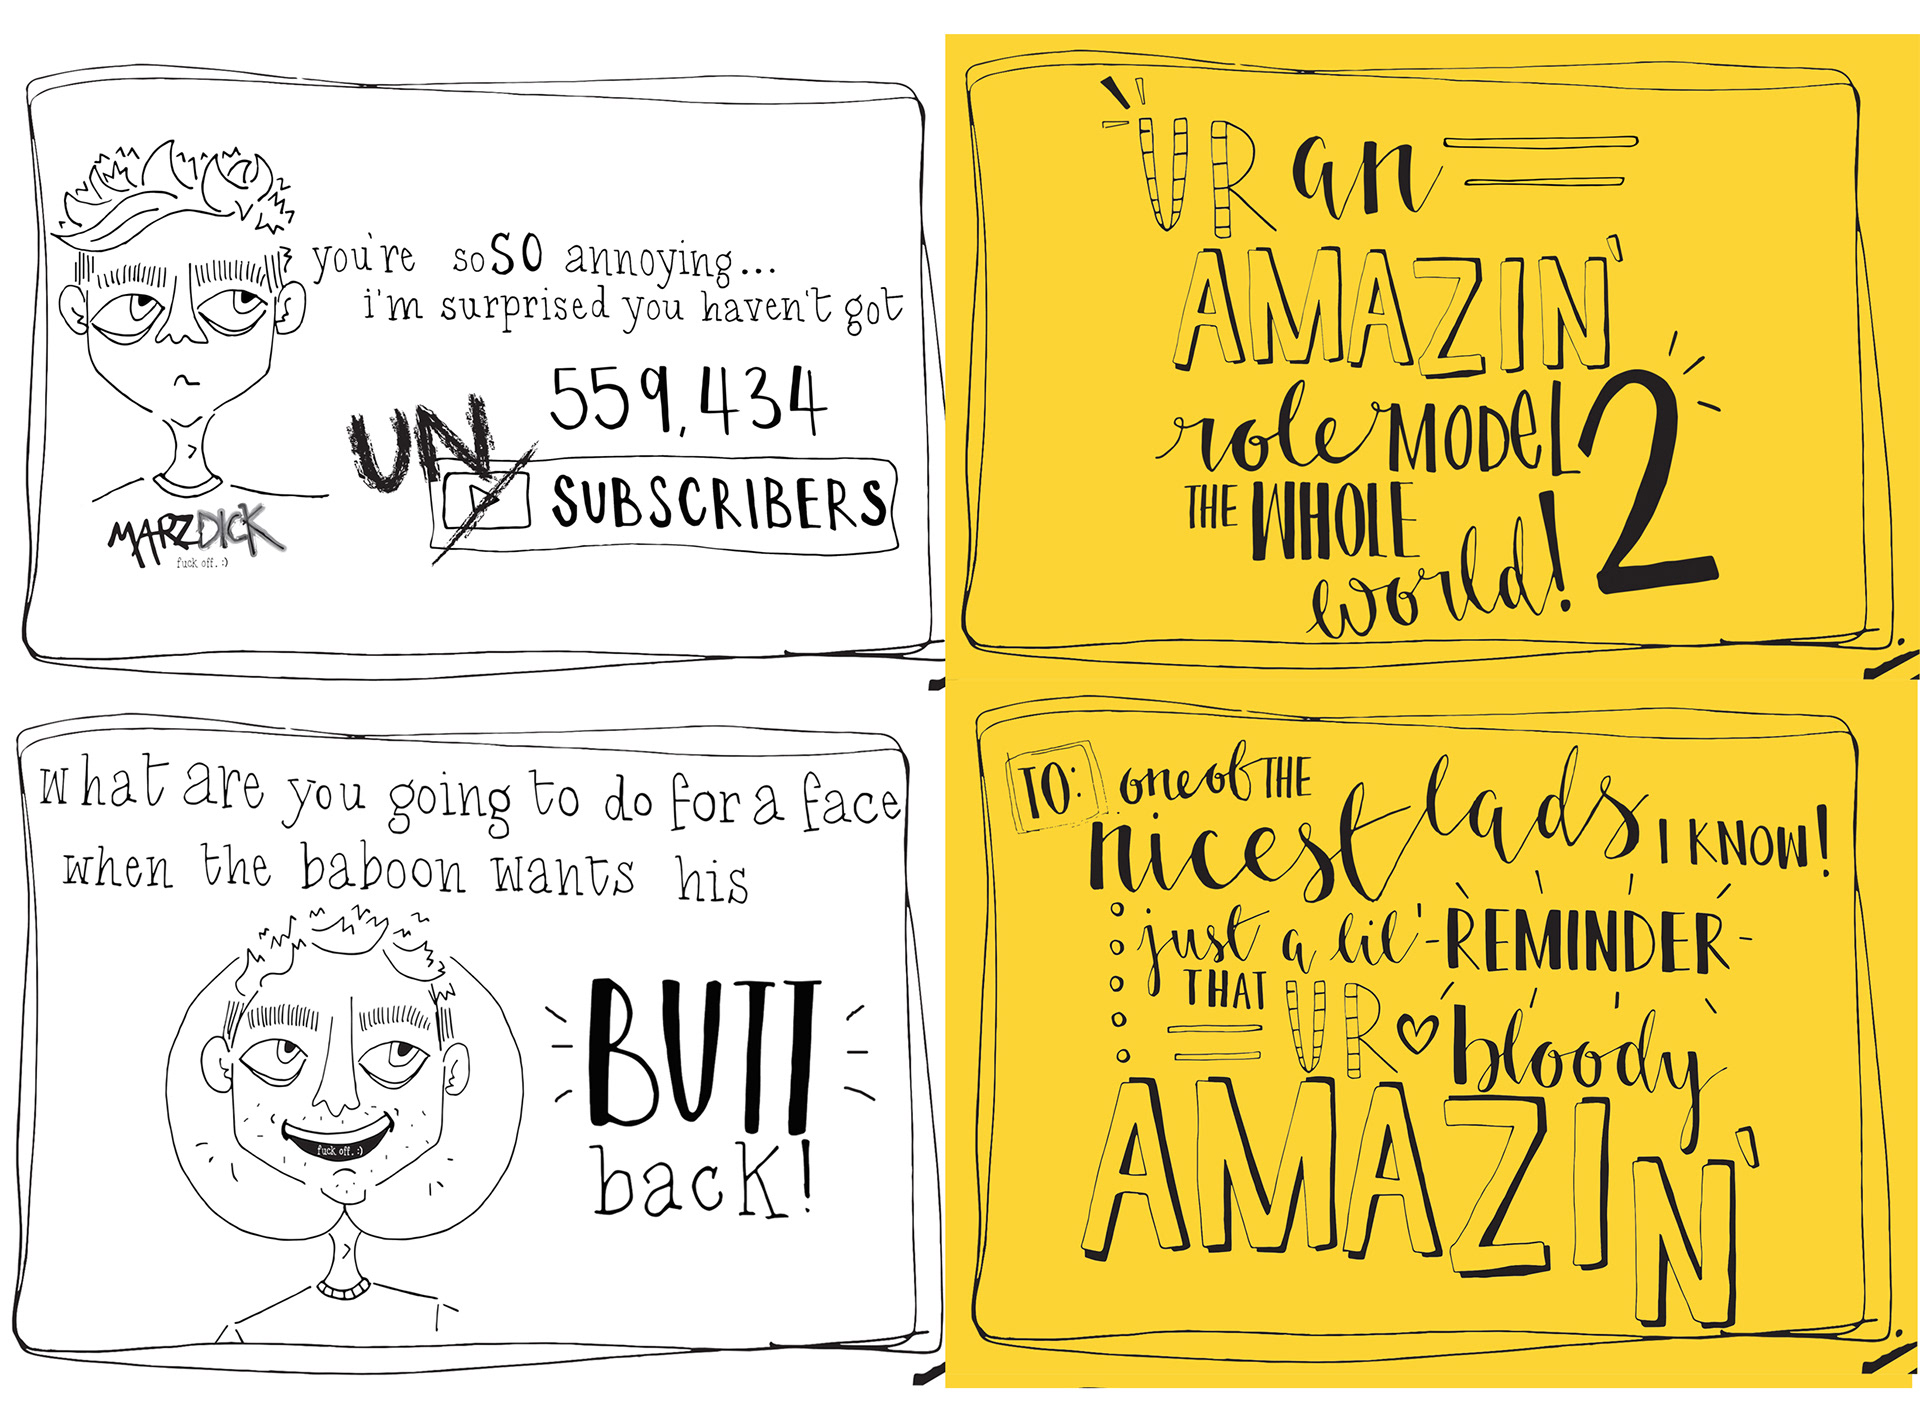 you're so SO annoying...
i'm surprised you haven't got
559,434
UN
SUBSCRIBERS
MARZDICK
fuck off. :)
UR an
AMAZIN'
role MODEL 2
THE WHOLE
world!
What are you going to do for a face
when the baboon wants his
BUTT
back!
fuck off. :)
TO: one of THE
nicest lads I KNOW!
just a lil' - REMINDER -
THAT UR bloody
AMAZIN'